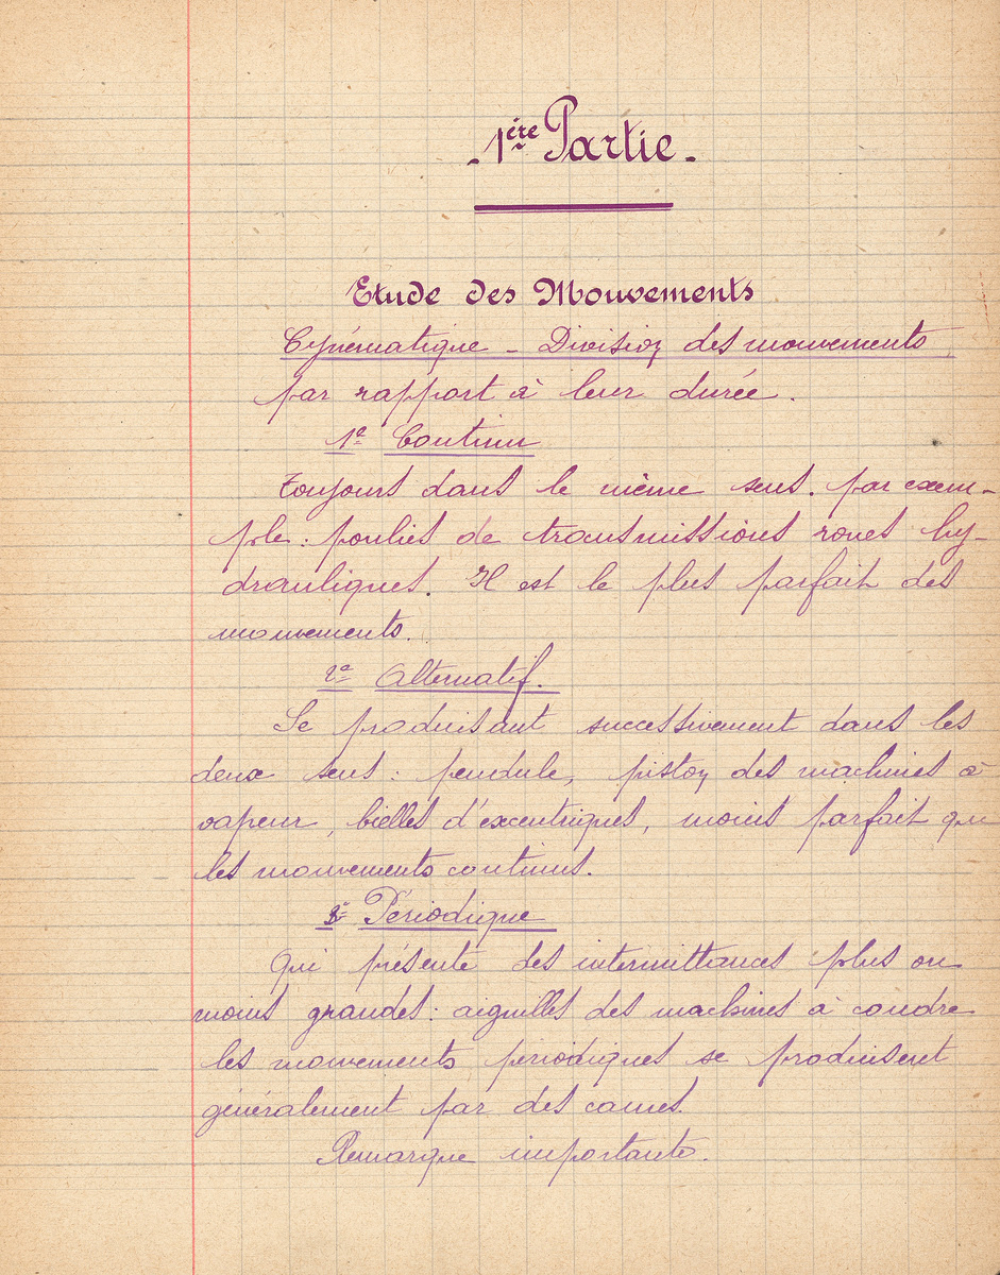 - 1ère Partie -
Etude des Mouvements
Cynématique - Division des mouvements
par rapport à leur durée.
1º Continu
Toujours dans le même sens. par exem-
ple : poulies de transmissions roues hy-
drauliques. Il est le plus parfait des
mouvements.
2º Alternatif.
Se produisant successivement dans les
deux sens : pendule, piston des machines à
vapeur, bielles d'excentriques, moins parfait que
les mouvements continus.
3º Périodique
Qui présente des intermittances plus ou
moins grandes : aiguilles des machines à coudre
les mouvements périodiques se produisent
généralement par des cames.
Remarque importante.